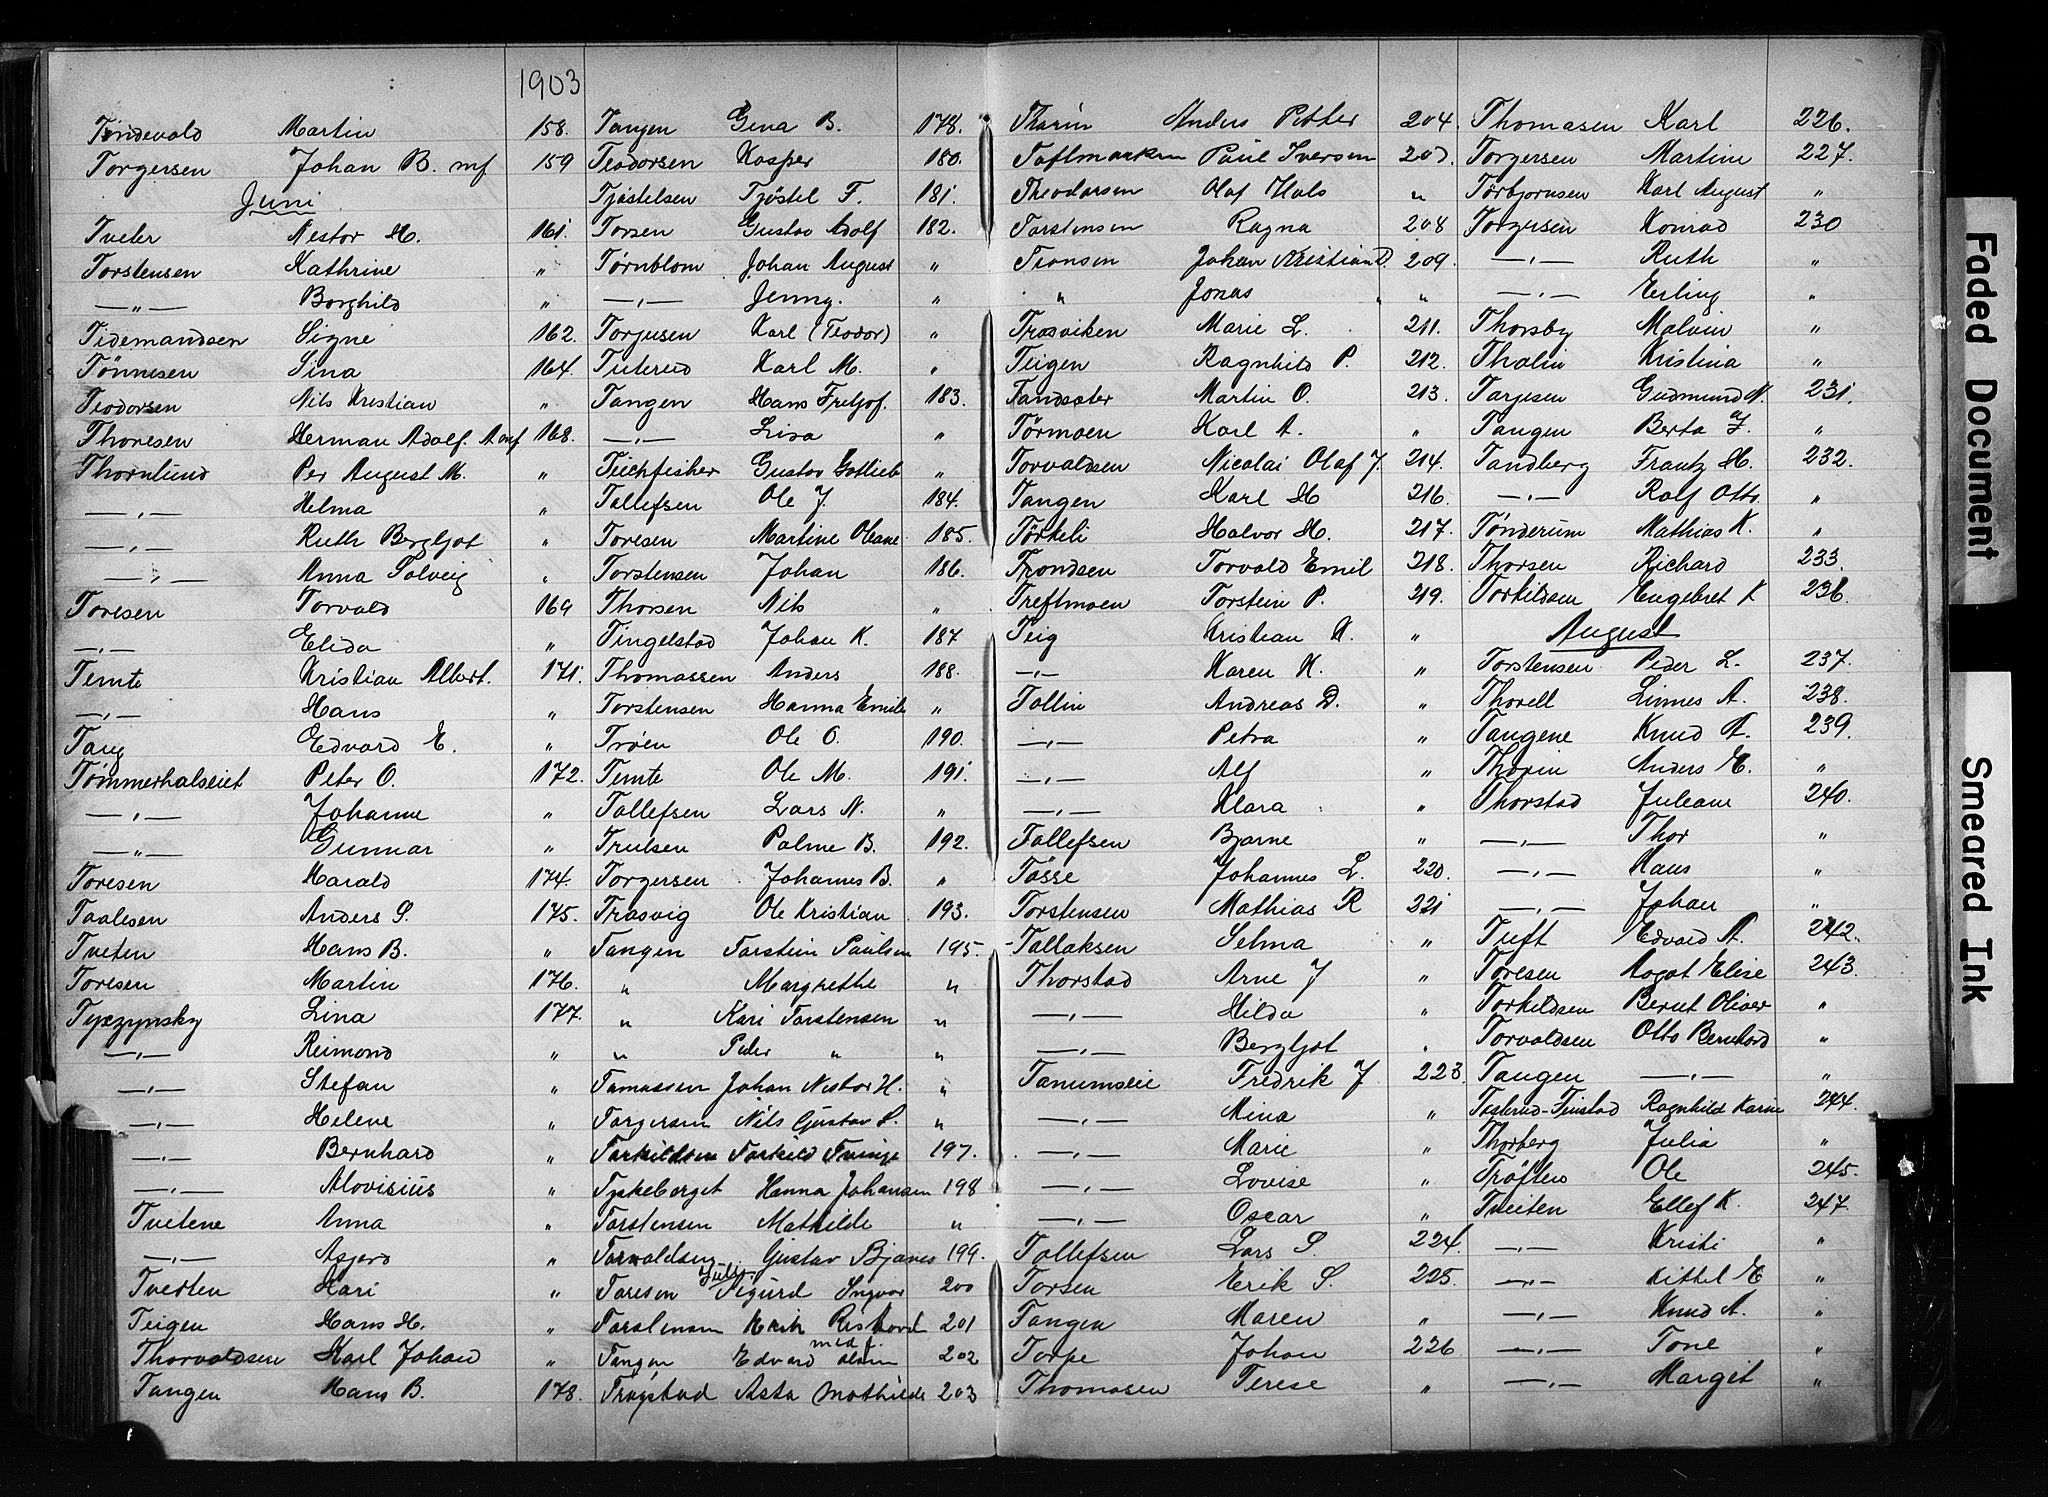 1903
Tøndevold Martin 158.
Torgersen Johan B. mf 159
Juni
Tveter Nestor H. 161.
Torstensen Kathrine "
—"— Borghild "
Tidemandsen Signe 162.
Tønnesen Sina 164.
Teodorsen Nils Kristian "
Thoresen Herman Adolf. A mf 168.
Thornlund Per August M. "
—"— Helma "
—"— Ruth Bergljot "
—"— Anna Solveig "
Toresen Torvald 169
—"— Elida "
Temte Kristian Albert. 171.
—"— Hans "
Tang Edvard E. "
Tømmerhalseiet Peter O. 172.
—"— Johanne "
—"— Gunnar "
Toresen Harald 174.
Taalesen Anders S. 175.
Tveten Hans B. "
Toresen Martin 176.
Tyszynsky Lina 177.
—"— Reimond "
—"— Stefan "
—"— Helene "
—"— Bernhard "
—"— Alovisius "
Tvetene Anna "
—"— Asjerd "
Tvedten Kari "
Teigen Hans H. "
Thorvaldsen Karl Johan "
Tangen Hans B. 178.
Tangen Gina B. 178.
Teodorsen Kasper 180.
Tjøstelsen Tjøstel F. 181.
Torsen Gustav Adolf 182.
Tørnblom Johan August "
—"— Jenny. "
Torjusen Karl (Teodor) "
Tuterud Karl M. "
Tangen Hans Fretjof. 183.
—"— Lisa "
Teichfisher Gustav Gotlieb "
Tallefsen Ole J. 184.
Toresen Martine Oleane 185.
Torstensen Johan 186.
Thorsen Nils "
Tingelstad Johan K. 187.
Thomassen Anders 188.
Torstensen Hanna Emilie "
Trøen Ole O. 190.
Temte Ole M. 191.
Tollefsen Lars N. "
Trulsen Palme B. 192.
Torgersen Johannes B. "
Trosvig Ole Kristian 193.
Tangen Torstein Paulsen 195.
" Margrethe "
" Kari Torstensen "
" Peder " "
Tomassen Johan Nestor H. "
Torgersen Nils Gustav S. "
Torkildsen Torkild Tvinge 197.
Tyskeberget Hanna Johansen 198
Torstensen Mathilde "
Torvaldsen Gustav Bjanes 199.
Juli.
Toresen Sigurd Ingvar 200
Torstensen Erik Rishovd 201
Tangen Edvard Olsen med f. 202
Trøgstad Asta Mathilde 203
Thorin Anders Petter 204.
Toftmarken Paul Iversen 207.
Theodorsen Olaf Hals "
Torstensen Ragna 208
Tronsen Johan Kristian D. 209.
" Jonas " "
Trosviken Marie L. 211.
Teigen Ragnhild P. 212.
Tandsæter Martin O. 213.
Tørmoen Karl A. "
Torvaldsen Nicolai Olaf J. 214.
Tangen Karl H 216.
Tørteli Halvor H. 217.
Trondsen Torvald Emil 218.
Treftmoen Torstein P. 219.
Teig Kristian K. "
—"— Karen K. "
Tollin Andreas D. "
—"— Petra "
—"— Alf "
—"— Klara "
Tollefsen Bjarne "
Tøsse Johannes L. 220.
Torstensen Mathias R 221
Tallaksen Selma "
Thorstad Arne J "
—"— Hilda "
—"— Bergljot "
Tanumseie Fredrik J 223
—"— Mina "
—"— Marie "
—"— Lovise "
—"— Oscar "
Tollefsen Lars S. 224.
Torsen Erik S. 225.
Tangen Maren "
Torpe Johan 226
Thomasen Terese "
Thomasen Karl 226.
Torgersen Martin 227.
Torbjornsen Karl August "
Torgersen Konrad 230
—"— Ruth "
—"— Erling "
Thorsby Malvin "
Thalin Kristina "
Tarjesen Gudmund N. 231.
Tangen Berta J. "
Tandberg Frantz H. 232.
—"— Rolf Otto "
Tønderum Mathias K. "
Thorsen Richard 233.
Torkildsen Engebret K 236.
August
Torstensen Peder L. 237.
Thorell Linnes A. 238.
Tangene Knud A. 239.
Thorin Anders E. "
Thorstad Juleane 240.
—"— Thor "
—"— Hans "
—"— Johan "
Tuft Edvard A. 242.
Toresen Aagot Elise 243.
Torkildsen Bernt Oliver "
Torvaldsen Otto Bernhard "
Tangen —"— "
Tosterud-Finstad Ragnhild Karine 244.
Thorberg Julia "
Trøften Ole 245.
Tveiten Ellef K. 247.
—"— Kristi "
—"— Kittel E "
—"— Knud A. "
—"— Tone "
—"— Margit "
Faded Document
Smeared Ink